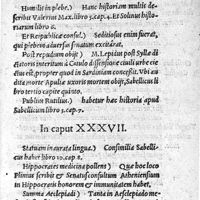 Humilis in plebe.) Hanc historiam multis de
scribit Valerius Max. libro 3. cap. 4. Et Solinus histo
riarum libro 6.
Et Reipublicæ consul.) Seditiosus enim fuerat,
qui plebem aduersus senatum excitarat.
Post repudium obijt.) M. Lepidus post Syllæ di
ctatoris interitum à Catulo dissensione ciuili urbe eie
ctus, propere quod in Sardiniam concessit. Vbi au
dita morte Apulæ uxoris moerore obijt, Sabellicus
libro 3. cap. 7.
Publius Rutilius.) habetur hæc historia apud
Sabellicum libro 3. cap. 7.
In caput XXXVII.
Statuam inaurata lingua.) Consimilia Sabelli
cus habet libro 10. cap. 8.
Hippocratis medicina pollens) Que hoc loco
Plinius scribit & Senatusconsultum Atheniensium
in Hippocratis honorem & immunitatem habet,
Summa Asclepiadi) Tanta in Asclepiado me